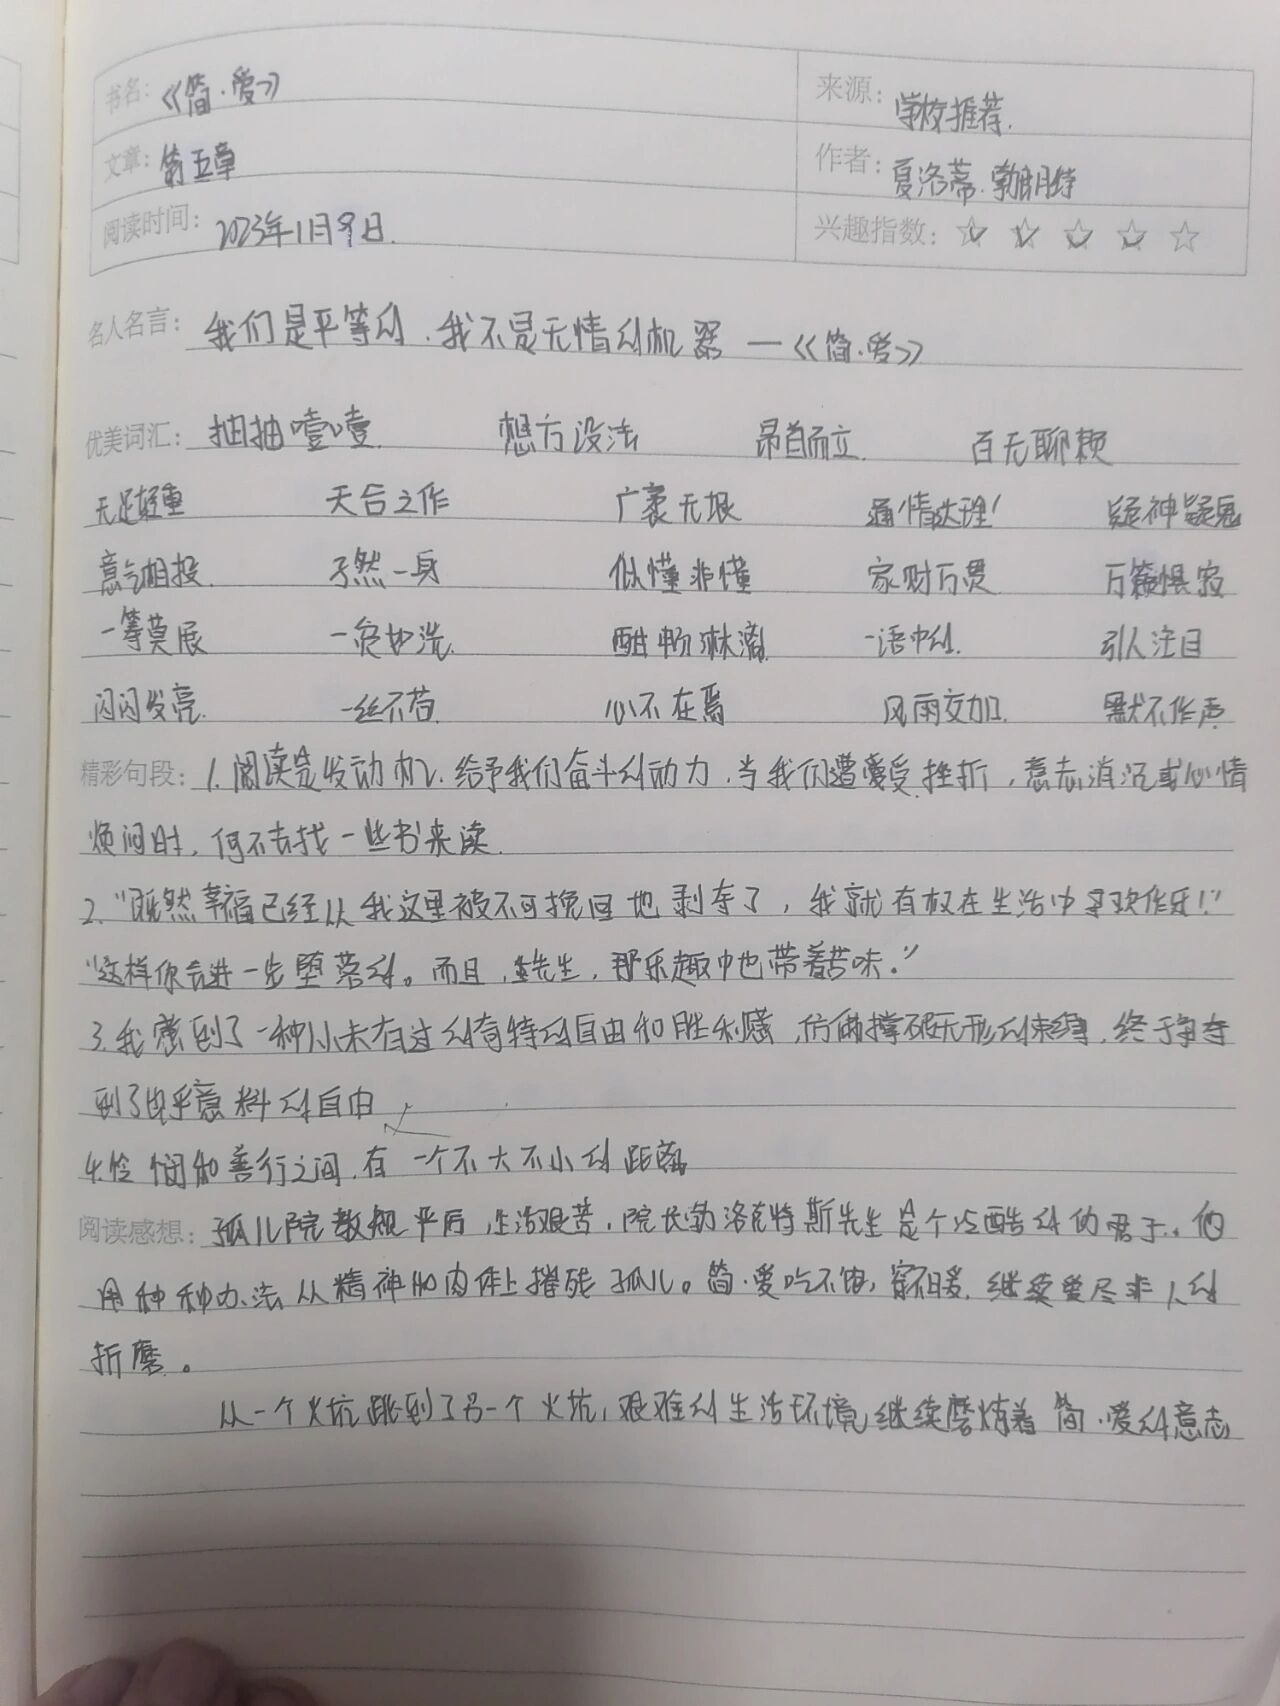 书名：《简·爱》
来源：学校推荐.
文章：第五章
作者：夏洛蒂·勃朗特
阅读时间：2023年1月9日.
兴趣指数：☆ ☆ ☆ ☆ ☆
名人名言：我们是平等的.我不是无情的机器 —《简·爱》
优美词汇：抽抽噎噎 想方设法 昂首而立 百无聊赖
无足轻重 天合之作 广袤无垠 通情达理 疑神疑鬼
意气相投 孑然一身 似懂非懂 家财万贯 万籁俱寂
一筹莫展 一贫如洗 酣畅淋漓 一语中的 引人注目
闪闪发亮 一丝不苟 心不在焉 风雨交加 默不作声
精彩句段：1.阅读是发动机、给予我们奋斗的动力，当我们遭受挫折，意志消沉或心情
烦闷时，何不去找一些书来读.
2."既然幸福已经从我这里被不可挽回地剥夺了，我就有权在生活中寻欢作乐！"
"这样你会进一步堕落的。而且，先生，那乐趣中也带着苦味."
3.我感到了一种从未有过的奇特的自由和胜利感，仿佛撑破无形的束缚，终于争夺
到了出乎意料的自由
4.怜悯和善行之间，有一个不大不小的距离
阅读感想：孤儿院教规严厉，生活艰苦，院长勃洛克特斯先生是个冷酷的伪君子.他
用种种办法从精神和肉体上摧残孤儿。简·爱吃不饱，穿不暖，继续受尽非人的
折磨。
从一个火坑跳到了另一个火坑，艰难的生活环境继续磨炼着简·爱的意志